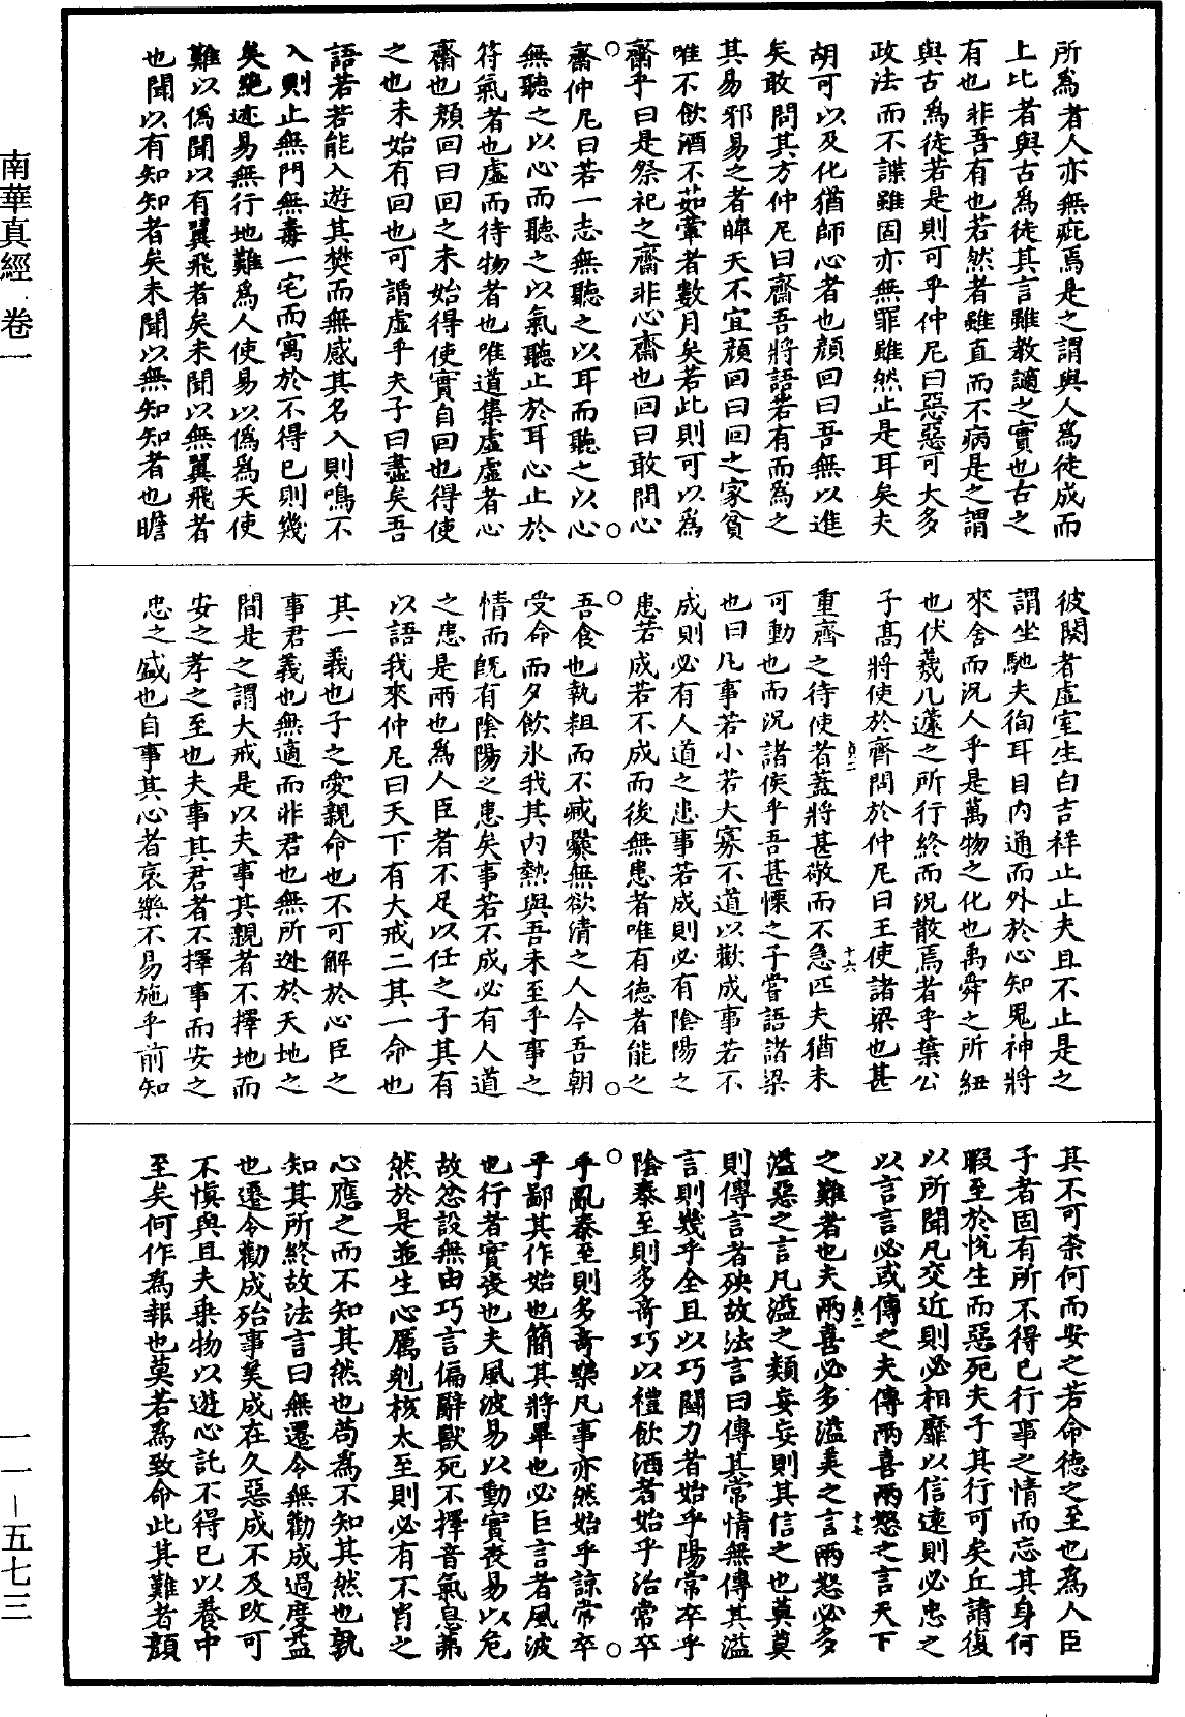 所爲者人亦無疵焉是之謂與人爲徒成而
上比者與古爲徒其言雖教讁之實也古之
有也非吾有也若然者雖直而不病是之謂
與古爲徒若是則可乎仲尼曰惡惡可大多
政法而不諜雖固亦無罪雖然止是耳矣夫
胡可以及化猶師心者也顏回曰吾無以進
矣敢問其方仲尼曰齋吾將語若有而爲之
其易邪易之者皞天不宜顏回曰回之家貧
唯不飲酒不茹葷者數月矣若此則可以爲
齋乎曰是祭祀之齋非心齋也回曰敢問心
齋仲尼曰若一志無聽之以耳而聽之以心
無聽之以心而聽之以氣聽止於耳心止於
符氣者也虛而待物者也唯道集虛虛者心
齋也顏回曰回之未始得使實自回也得使
之也未始有回也可謂虛乎夫子曰盡矣吾
語若若能入遊其樊而無感其名入則鳴不
入則止無門無毒一宅而寓於不得已則幾
矣絶迹易無行地難爲人使易以僞爲天使
難以僞聞以有翼飛者矣未聞以無翼飛者
也聞以有知知者矣未聞以無知知者也瞻
彼闋者虛室生白吉祥止止夫且不止是之
謂坐馳夫徇耳目內通而外於心知鬼神將
來舍而況人乎是萬物之化也禹舜之所紐
也伏羲几蘧之所行終而況散焉者乎葉公
子高將使於齊問於仲尼曰王使諸梁也甚
貞二 十六
重齊之待使者蓋將甚敬而不急匹夫猶未
可動也而況諸侯乎吾甚慄之子嘗語諸梁
也曰凡事若小若大寡不道以歡成事若不
成則必有人道之患事若成則必有陰陽之
患若成若不成而後無患者唯有德者能之
吾食也執粗而不臧爨無欲清之人今吾朝
受命而夕飲氷我其內熱與吾未至乎事之
情而旣有陰陽之患矣事若不成必有人道
之患是兩也爲人臣者不足以任之子其有
以語我來仲尼曰天下有大戒二其一命也
其一義也子之愛親命也不可解於心臣之
事君義也無適而非君也無所逃於天地之
間是之謂大戒是以夫事其親者不擇地而
安之孝之至也夫事其君者不擇事而安之
忠之盛也自事其心者哀樂不易施乎前知
其不可柰何而安之若命德之至也爲人臣
子者固有所不得已行事之情而忘其身何
暇至於悅生而惡死夫子其行可矣丘請復
以所聞凡交近則必相靡以信遠則必忠之
以言言必或傳之夫傳兩喜兩怒之言天下
貞二 十七
之難者也夫兩喜必多溢美之言兩怒必多
溢惡之言凡溢之類妄妄則其信之也莫莫
則傳言者殃故法言曰傳其常情無傳其溢
言則幾乎全且以巧鬭力者始乎陽常卒乎
陰泰至則多奇巧以禮飲酒者始乎治常卒
乎亂泰至則多奇樂凡事亦然始乎諒常卒
乎鄙其作始也簡其將畢也必巨言者風波
也行者實喪也夫風波易以動實喪易以危
故忿設無由巧言偏辭獸死不擇音氣息茀
然於是並生心厲剋核太至則必有不肖之
心應之而不知其然也苟爲不知其然也孰
知其所終故法言曰無遷令無勸成過度益
也遷令勸成殆事美成在久惡成不及改可
不愼與且夫乘物以遊心託不得已以養中
至矣何作爲報也莫若爲致命此其難者顏
南華真經 卷一
一一—五七三